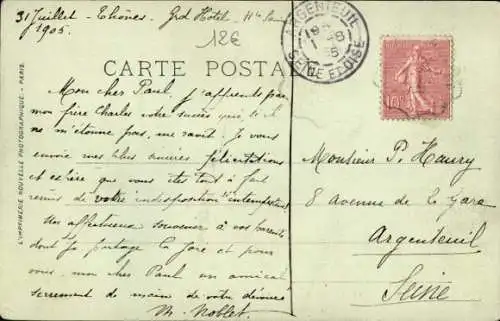 31 Juillet - Thônes - Grd Hôtel
1905.
12€
CARTE POSTALE
ARGENTEUIL
SEINE ET OISE
10c
L'IMPRIMERIE NOUVELLE PHOTOGRAPHIQUE - PARIS
Mon cher Paul, J'apprends par
mon frère Charles votre succès qui, s'il
ne m'étonne pas, me ravit. Je vous
envoie mes plus sincères félicitations
et espère que vous êtes tout à fait
remis de votre indisposition intempestive
Mes affectueux souvenir à vos parents
dont je partage la joie et pour
vous, mon cher Paul un amical
serrement de main de votre dévoué
M. Noblet
Monsieur P. Haury
8 avenue de la Gare
Argenteuil
Seine